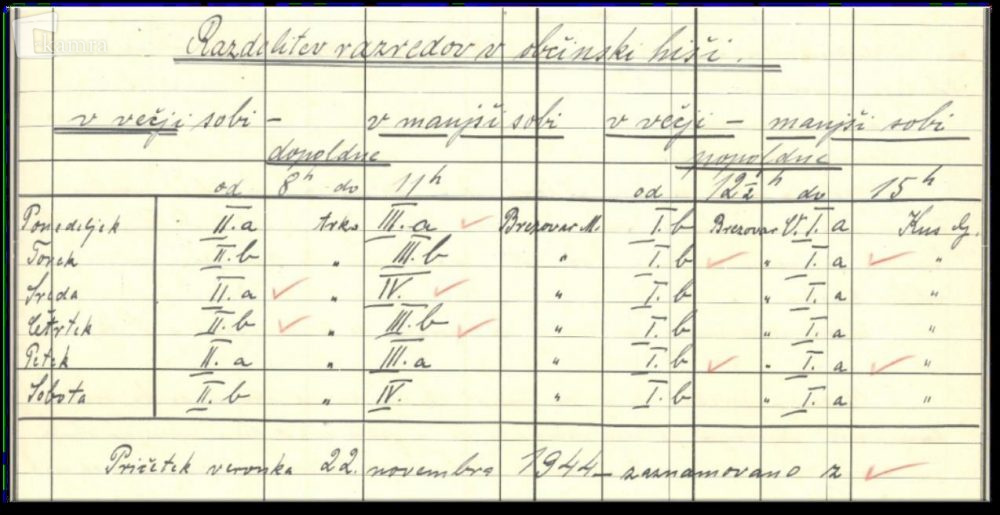 kamra
Razdelitev razredov v občinski hiši.
v večji sobi – v manjši sobi v večji – manjši sobi
dopoldne popoldne
od 8h do 11h od 12½h do 15h
Ponedeljek II.a Arko III.a ✓ Brezovar M. I.b Brezovar V. I.a Kus G.
Torek II.b " III.b " I.b ✓ " I.a ✓ "
Sreda II.a ✓ " IV. ✓ " I.b " I.a "
Četrtek II.b ✓ " III.b ✓ " I.b " I.a "
Petek II.a " III.a " I.b ✓ " I.a ✓ "
Sobota II.b " IV. " I.b " I.a "
Pričetek veronka 22. novembra 1944 – zaznamovano z ✓